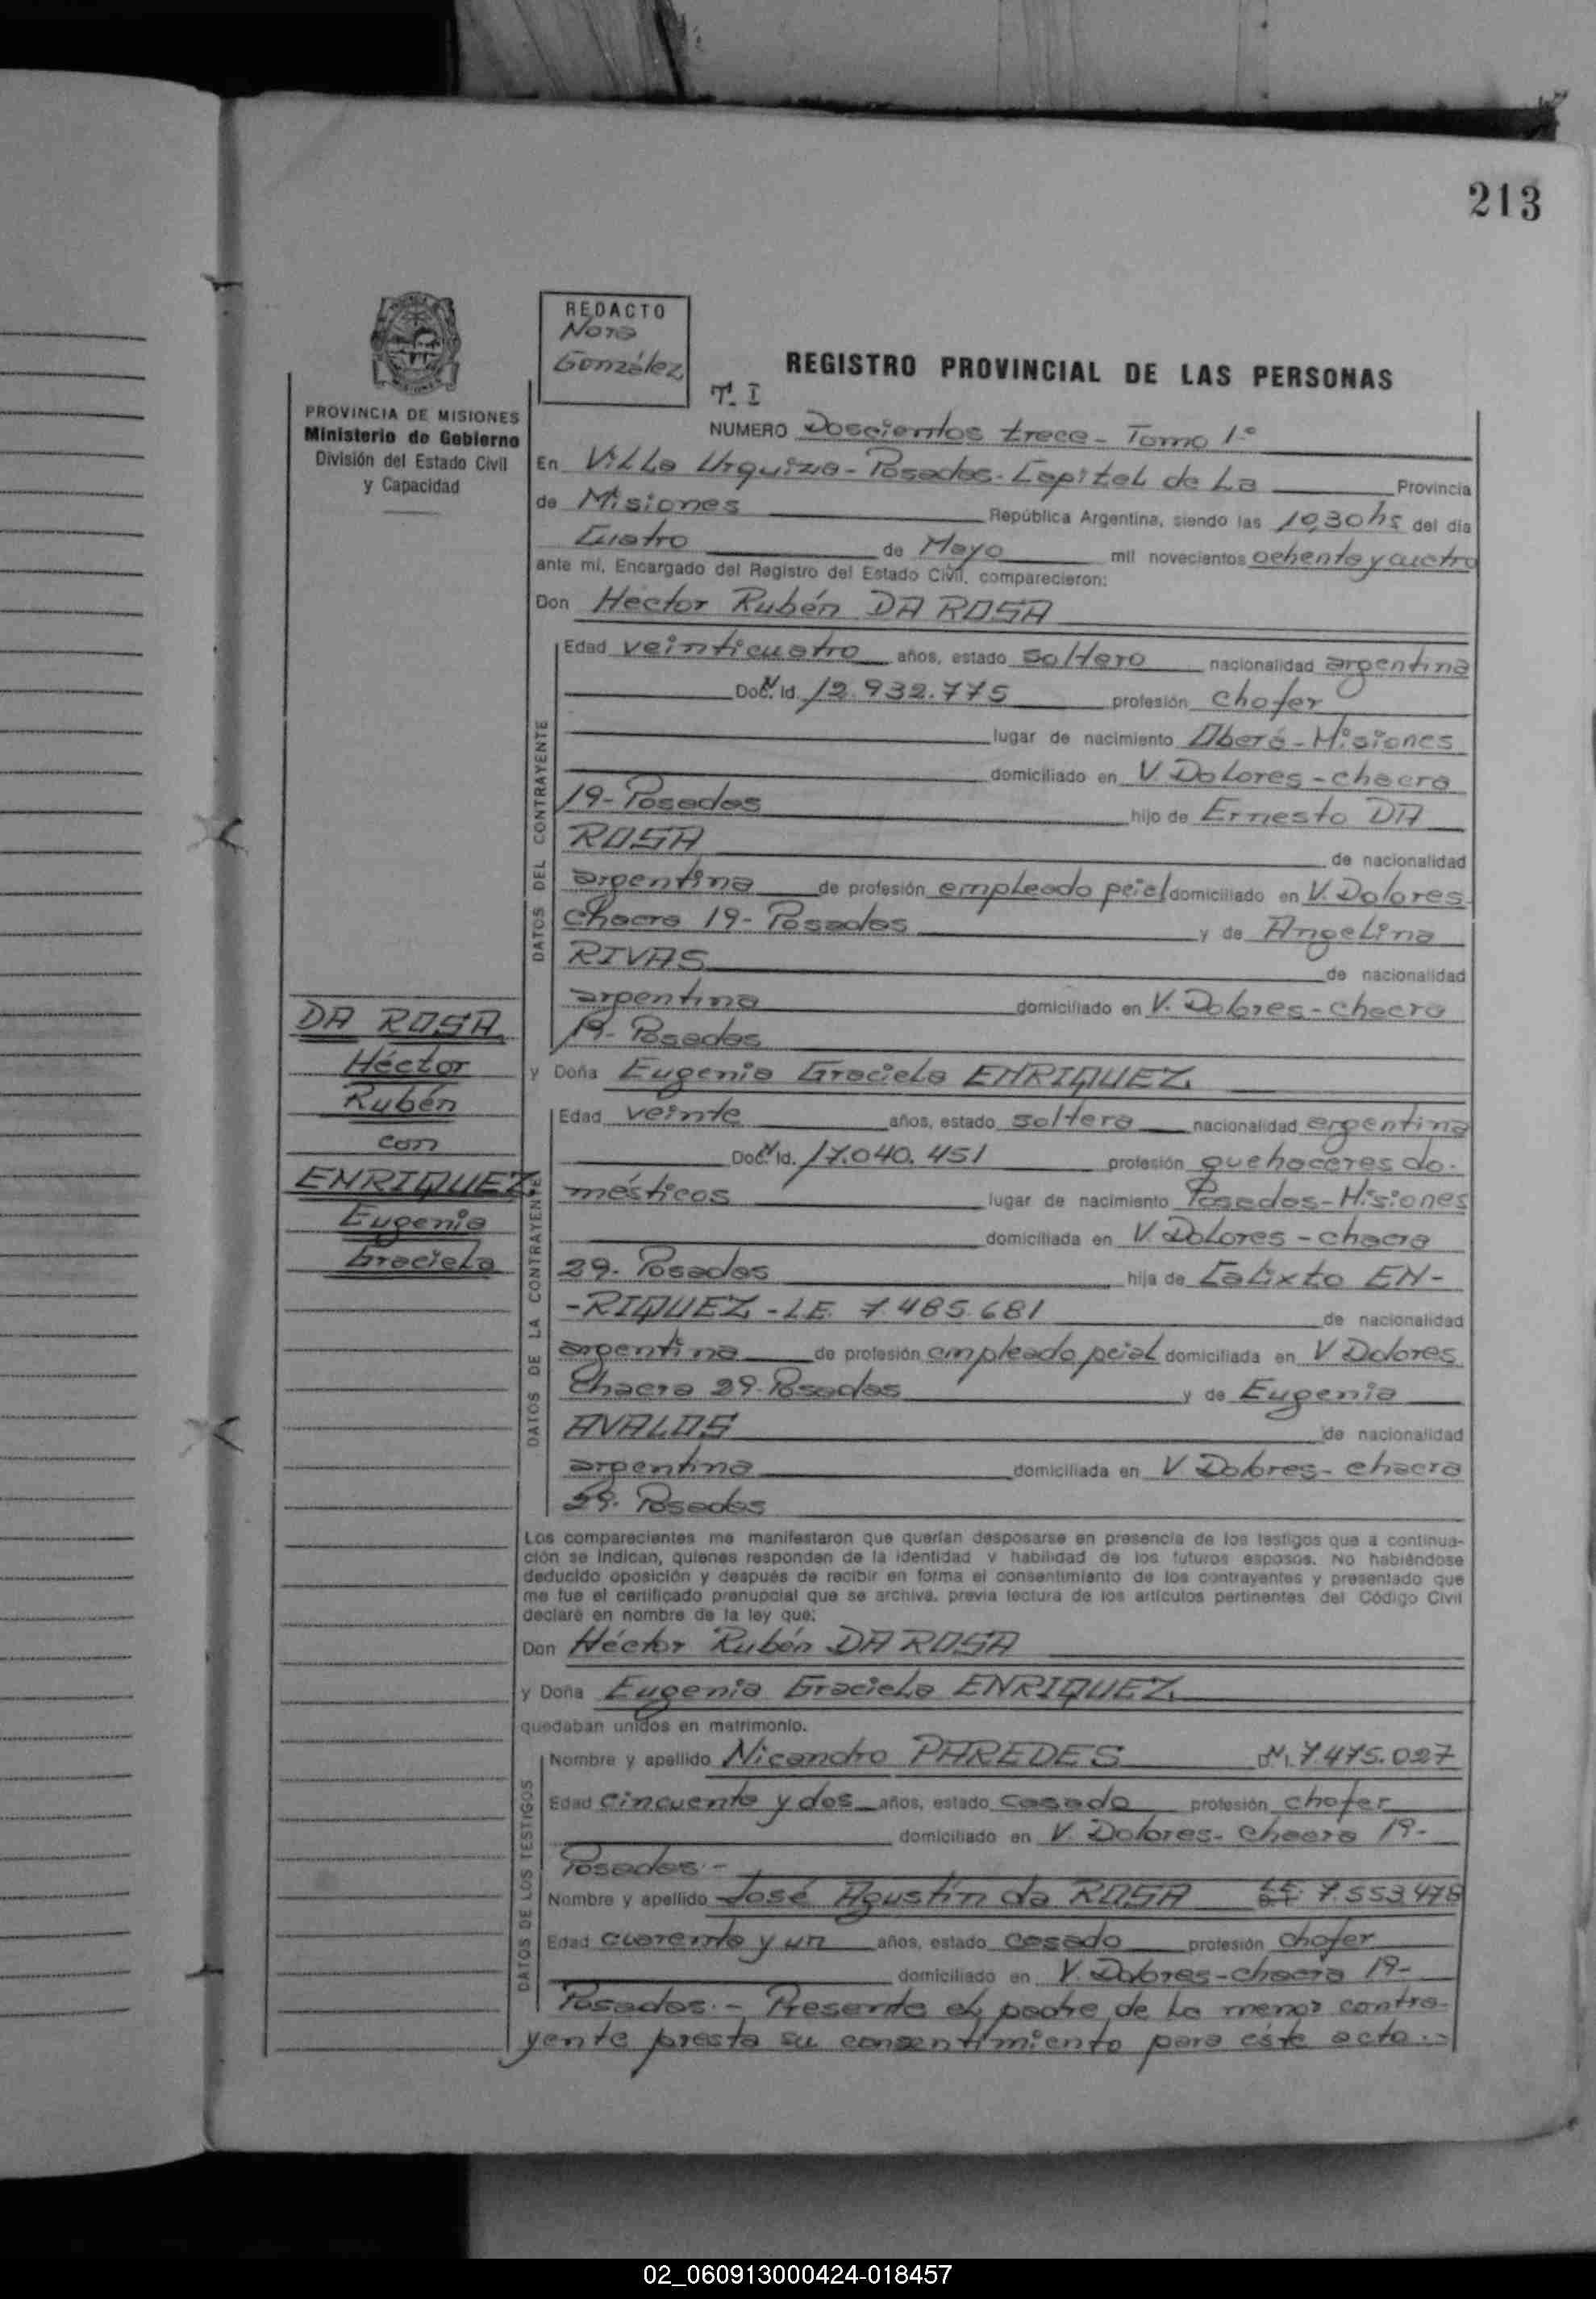 213
REDACTO
Nora
González
REGISTRO PROVINCIAL DE LAS PERSONAS
Tº I
PROVINCIA DE MISIONES
Ministerio de Gobierno
División del Estado Civil
y Capacidad
NUMERO Doscientos trece - Tomo 1º
En Villa Urquiza - Posadas - Capital de La Provincia
de Misiones República Argentina, siendo las 10,30 hs del día
Cuatro de Mayo mil novecientos ochenta y cuatro
ante mí, Encargado del Registro del Estado Civil, comparecieron:
Don Hector Rubén DA ROSA
DATOS DEL CONTRAYENTE
Edad veinticuatro años, estado soltero nacionalidad argentina
Doc. Id. 12.932.775 profesión chofer
lugar de nacimiento Oberá - Misiones
domiciliado en V. Dolores - chacra
19 - Posadas hijo de Ernesto DA
ROSA de nacionalidad
argentina de profesión empleado pcial domiciliado en V. Dolores
chacra 19 - Posadas y de Angelina
RIVAS de nacionalidad
argentina domiciliado en V. Dolores - chacra
19 - Posadas
y Doña Eugenia Graciela ENRIQUEZ
DATOS DE LA CONTRAYENTE
Edad veinte años, estado soltera nacionalidad argentina
Doc. Id. 17.040.451 profesión quehaceres do-
mésticos lugar de nacimiento Posadas - Misiones
domiciliada en V. Dolores - chacra
29 - Posadas hija de Calixto EN-
-RIQUEZ - L.E. 7.485.681 de nacionalidad
argentina de profesión empleado pcial domiciliada en V Dolores
Chacra 29 - Posadas y de Eugenia
AVALOS de nacionalidad
argentina domiciliada en V Dolores - chacra
29 - Posadas
DA ROSA
Héctor
Rubén
con
ENRIQUEZ
Eugenia
Graciela
Los comparecientes me manifestaron que querían desposarse en presencia de los testigos que a continua-
ción se indican, quienes responden de la identidad y habilidad de los futuros esposos. No habiéndose
deducido oposición y después de recibir en forma el consentimiento de los contrayentes y presentado que
me fue el certificado prenupcial que se archiva, previa lectura de los artículos pertinentes del Código Civil
declaré en nombre de la ley que:
Don Héctor Rubén DA ROSA
y Doña Eugenia Graciela ENRIQUEZ
quedaban unidos en matrimonio.
DATOS DE LOS TESTIGOS
Nombre y apellido Nicandro PAREDES 7.475.027
Edad cincuenta y dos años, estado casado profesión chofer
domiciliado en V. Dolores - chacra 19 -
Posadas. -
Nombre y apellido José Agustín da ROSA L.E. 7.553.478
Edad cuarenta y un años, estado casado profesión chofer
domiciliado en V. Dolores - chacra 19 -
Posadas. - Presente el padre de La menor contra-
yente presta su consentimiento para éste acto. -
02_060913000424-018457